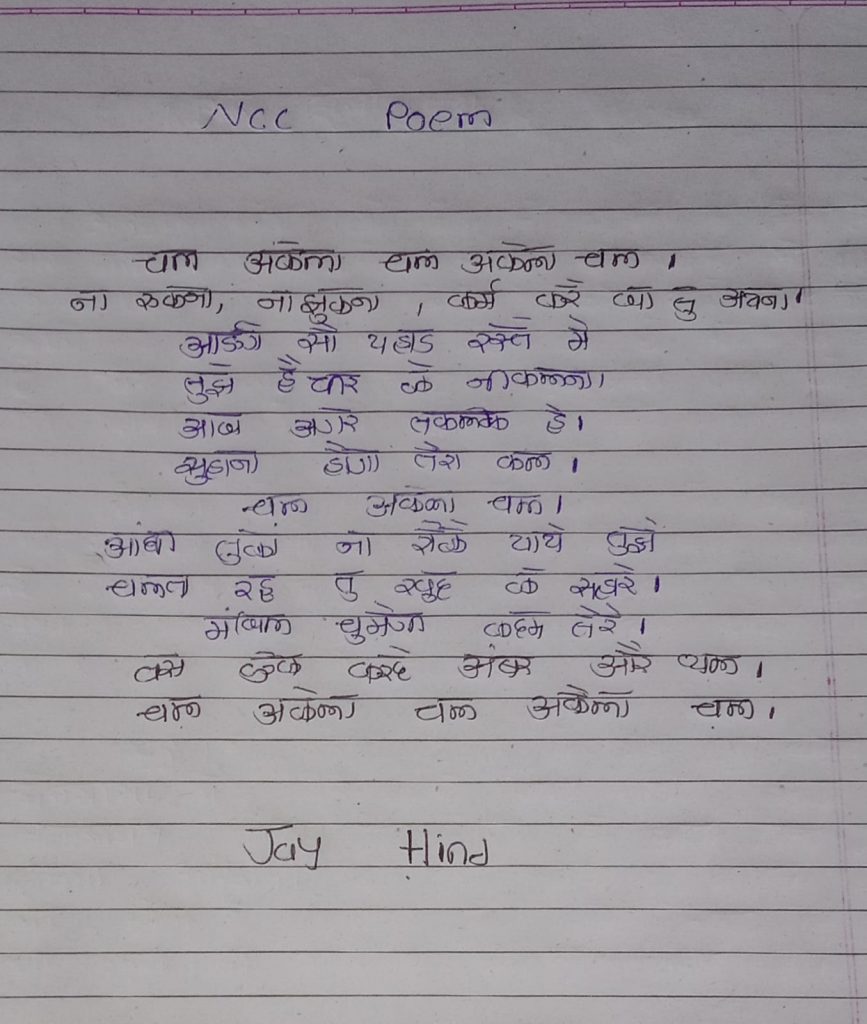 NCC Poem
चल अकेला चल अकेला चल ।
ना रुकना, ना झुकना , कर्म करे जा तु अपना।
आऐंगे सौ पहाड रस्ते मे
तुझे है पार के नीकलना।
आज अगर तकलीफ है।
सुहाना होगा तेरा कल ।
चल अकेला चल ।
आंधी तुफा ना रोके पाये तुझे
चलता रह तु सुबह के सवेरे ।
मंजिल चुमेगी कदम तेरे ।
बस एक करदे अंबर और थल ।
चल अकेला चल अकेला चल ।
Jay Hind